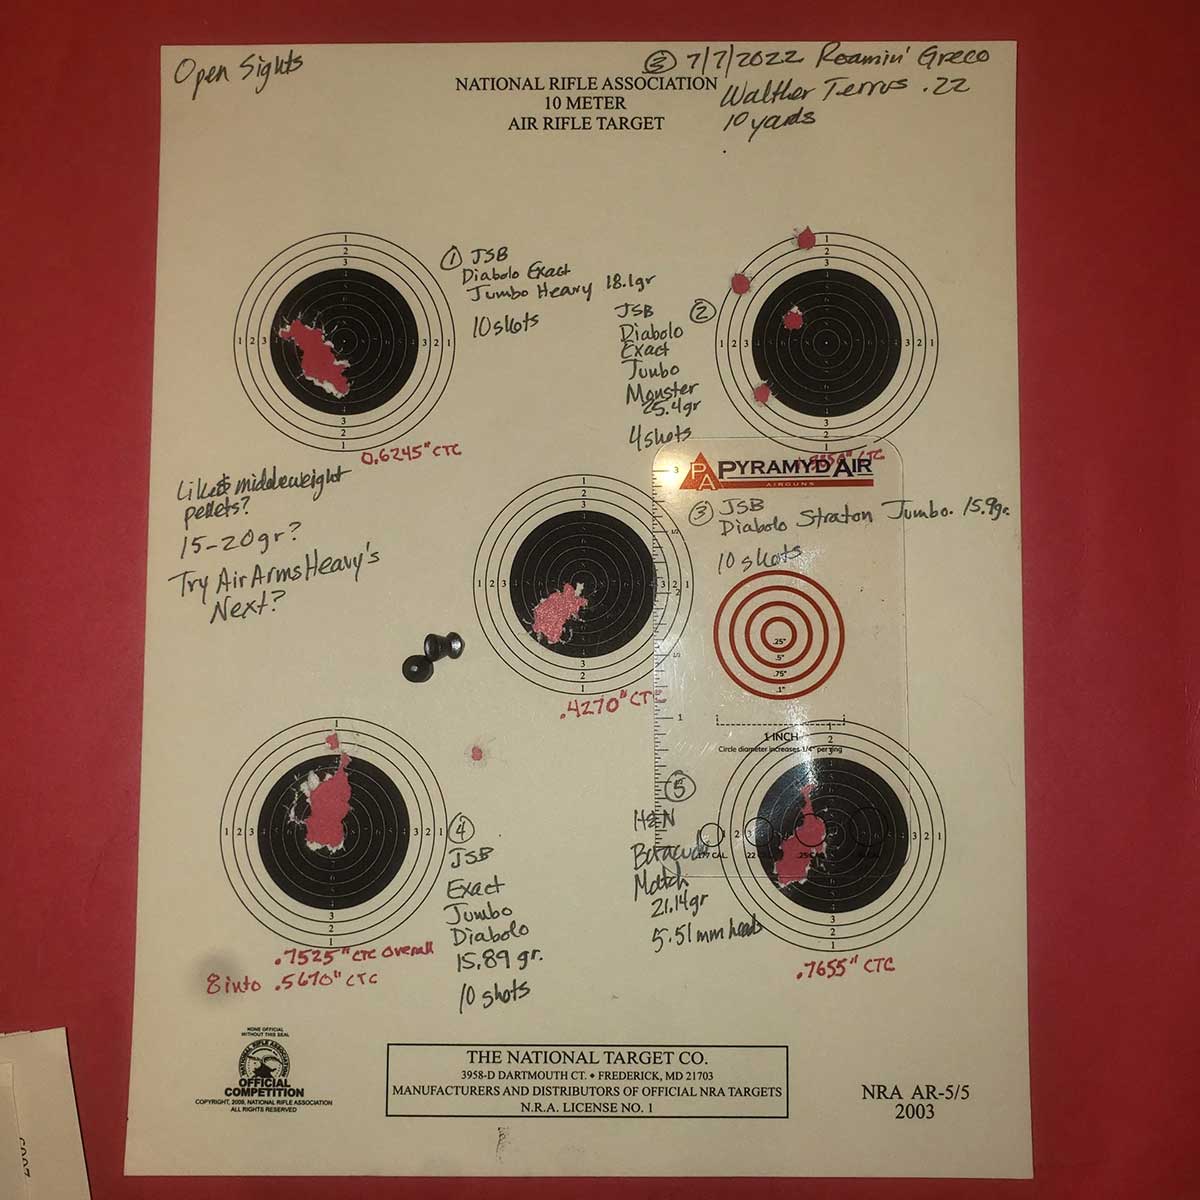 Open Sights
③ 7/7/2022 Roamin' Greco
Walther Terrus .22
10 yards
NATIONAL RIFLE ASSOCIATION
10 METER
AIR RIFLE TARGET
① JSB
Diabolo Exact
Jumbo Heavy 18.1gr
10 shots
0.6245" CTC
② JSB
Diabolo
Exact
Jumbo
Monster
25.4gr
4 shots
CTC
Likes middleweight
pellets?
15-20gr?
Try Air Arms Heavy's
Next?
PA PYRAMYD AIR
AIRGUNS
③ JSB
Diabolo Straton Jumbo. 15.9gr
10 shots
.4270" CTC
.25"
.5"
.75"
.1"
1 INCH
Circle diameter increases 1/4" per ring
④
JSB
Exact
Jumbo
Diabolo
15.89 gr.
10 shots
.7525" CTC Overall
8 into .5670" CTC
⑤
H&N
Baracuda
Match
21.14gr
5.51mm heads
.177 CAL.
.22
.25 CAL
.7655" CTC
NONE OFFICIAL
WITHOUT THIS SEAL
NATIONAL RIFLE ASSOCIATION
OFFICIAL
COMPETITION
COPYRIGHT, 2009, NATIONAL RIFLE ASSOCIATION
ALL RIGHTS RESERVED
THE NATIONAL TARGET CO.
3958-D DARTMOUTH CT. • FREDERICK, MD 21703
MANUFACTURERS AND DISTRIBUTORS OF OFFICIAL NRA TARGETS
N.R.A. LICENSE NO. 1
NRA AR-5/5
2003